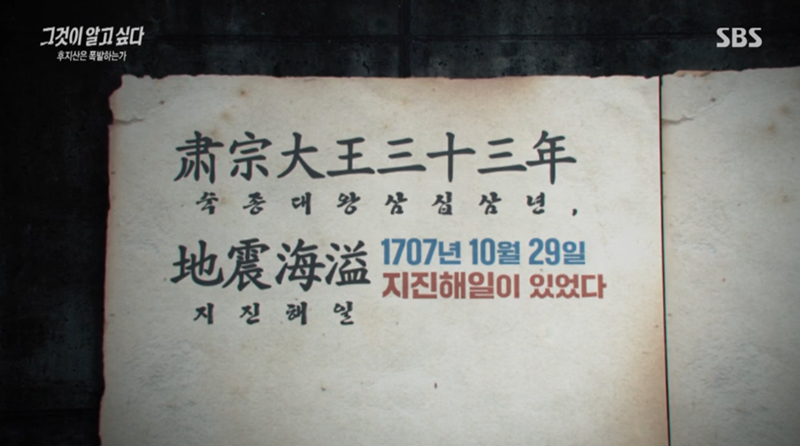 그것이 알고 싶다
후지산은 폭발하는가
SBS
肅宗大王三十三年
숙종대왕삼십삼년,
地震海溢
지진해일
1707년 10월 29일
지진해일이 있었다